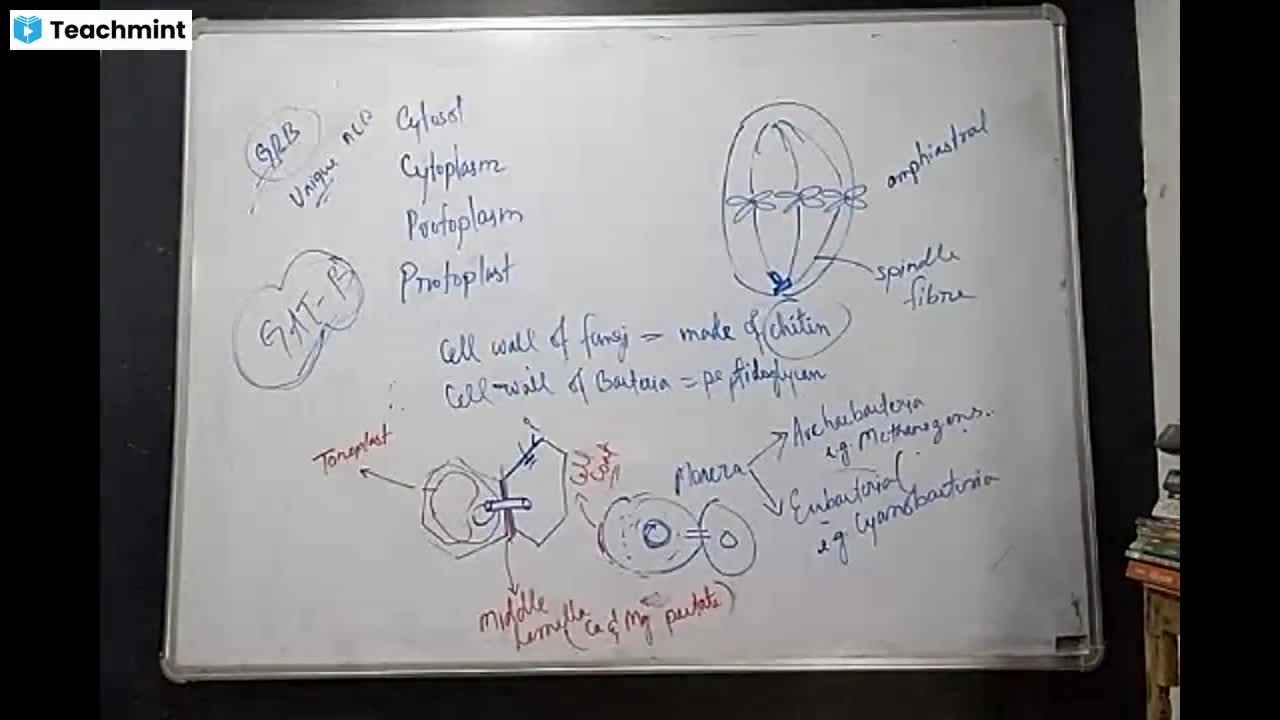 Teachmint
GRB
Unique
Cytosol
Cytoplasm
Protoplasm
Protoplast
GAT-B
amphiastral
spindle
fibre
Cell wall of fungi = made of chitin
Cell wall of Bacteria = peptidoglycan
Tonoplast
Monera
Archaebacteria
e.g. Methanogens..
Eubacteria
e.g. Cyanobacteria
Middle
Lamella (Ca & Mg pectate)